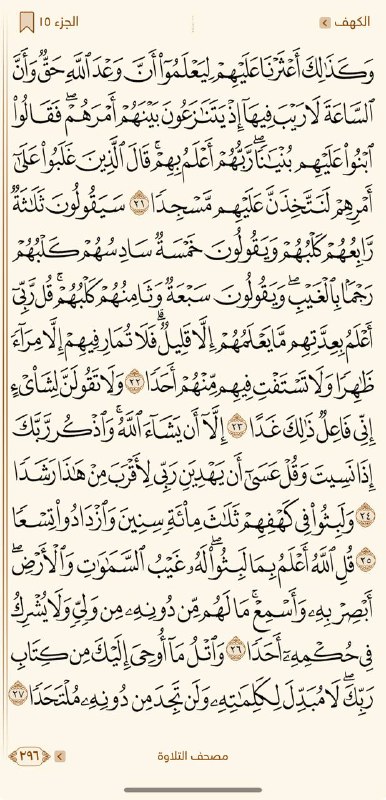 الكهف
الجزء ١٥
وَكَذَٰلِكَ أَعْثَرْنَا عَلَيْهِمْ لِيَعْلَمُوٓا۟ أَنَّ وَعْدَ ٱللَّهِ حَقٌّ وَأَنَّ
ٱلسَّاعَةَ لَا رَيْبَ فِيهَآ إِذْ يَتَنَٰزَعُونَ بَيْنَهُمْ أَمْرَهُمْ ۖ فَقَالُوا۟
ٱبْنُوا۟ عَلَيْهِم بُنْيَٰنًا ۖ رَّبُّهُمْ أَعْلَمُ بِهِمْ ۚ قَالَ ٱلَّذِينَ غَلَبُوا۟ عَلَىٰٓ
أَمْرِهِمْ لَنَتَّخِذَنَّ عَلَيْهِم مَّسْجِدًا ٢١ سَيَقُولُونَ ثَلَٰثَةٌ
رَّابِعُهُمْ كَلْبُهُمْ وَيَقُولُونَ خَمْسَةٌ سَادِسُهُمْ كَلْبُهُمْ
رَجْمًۢا بِٱلْغَيْبِ ۖ وَيَقُولُونَ سَبْعَةٌ وَثَامِنُهُمْ كَلْبُهُمْ ۚ قُل رَّبِّىٓ
أَعْلَمُ بِعِدَّتِهِم مَّا يَعْلَمُهُمْ إِلَّا قَلِيلٌ ۗ فَلَا تُمَارِ فِيهِمْ إِلَّا مِرَآءً
ظَٰهِرًا وَلَا تَسْتَفْتِ فِيهِم مِّنْهُمْ أَحَدًا ٢٢ وَلَا تَقُولَنَّ لِشَا۟ىْءٍ
إِنِّى فَاعِلٌ ذَٰلِكَ غَدًا ٢٣ إِلَّآ أَن يَشَآءَ ٱللَّهُ ۚ وَٱذْكُر رَّبَّكَ
إِذَا نَسِيتَ وَقُلْ عَسَىٰٓ أَن يَهْدِيَنِ رَبِّى لِأَقْرَبَ مِنْ هَٰذَا رَشَدًا
٢٤ وَلَبِثُوا۟ فِى كَهْفِهِمْ ثَلَٰثَ مِا۟ئَةٍ سِنِينَ وَٱزْدَادُوا۟ تِسْعًا
٢٥ قُلِ ٱللَّهُ أَعْلَمُ بِمَا لَبِثُوا۟ ۖ لَهُۥ غَيْبُ ٱلسَّمَٰوَٰتِ وَٱلْأَرْضِ ۖ
أَبْصِرْ بِهِۦ وَأَسْمِعْ ۚ مَا لَهُم مِّن دُونِهِۦ مِن وَلِىٍّ وَلَا يُشْرِكُ
فِى حُكْمِهِۦٓ أَحَدًا ٢٦ وَٱتْلُ مَآ أُوحِىَ إِلَيْكَ مِن كِتَابِ
رَبِّكَ ۖ لَا مُبَدِّلَ لِكَلِمَٰتِهِۦ وَلَن تَجِدَ مِن دُونِهِۦ مُلْتَحَدًا ٢٧
مصحف التلاوة
٢٩٦